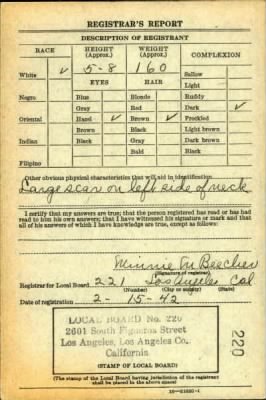 REGISTRAR'S REPORT
DESCRIPTION OF REGISTRANT
RACE HEIGHT (Approx.) WEIGHT (Approx.) COMPLEXION
White ✓ 5-8 160 Sallow
EYES HAIR Light
Negro Blue Blonde Ruddy
Gray Red Dark ✓
Oriental Hazel ✓ Brown ✓ Freckled
Brown Black Light brown
Indian Black Gray Dark brown
Bald Black
Filipino
Other obvious physical characteristics that will aid in identification
Large scar on left side of neck
I certify that my answers are true; that the person registered has read or has had
read to him his own answers; that I have witnessed his signature or mark and that
all of his answers of which I have knowledge are true, except as follows:
Minnie M Beecher
(Signature of registrar)
Registrar for Local Board 221 Los Angeles Cal
(Number) (City or county) (State)
Date of registration 2-15-42
LOCAL BOARD No. 220
2601 South Figueroa Street
Los Angeles, Los Angeles Co.
California
(STAMP OF LOCAL BOARD)
220
(The stamp of the Local Board having jurisdiction of the registrant
shall be placed in the above space)